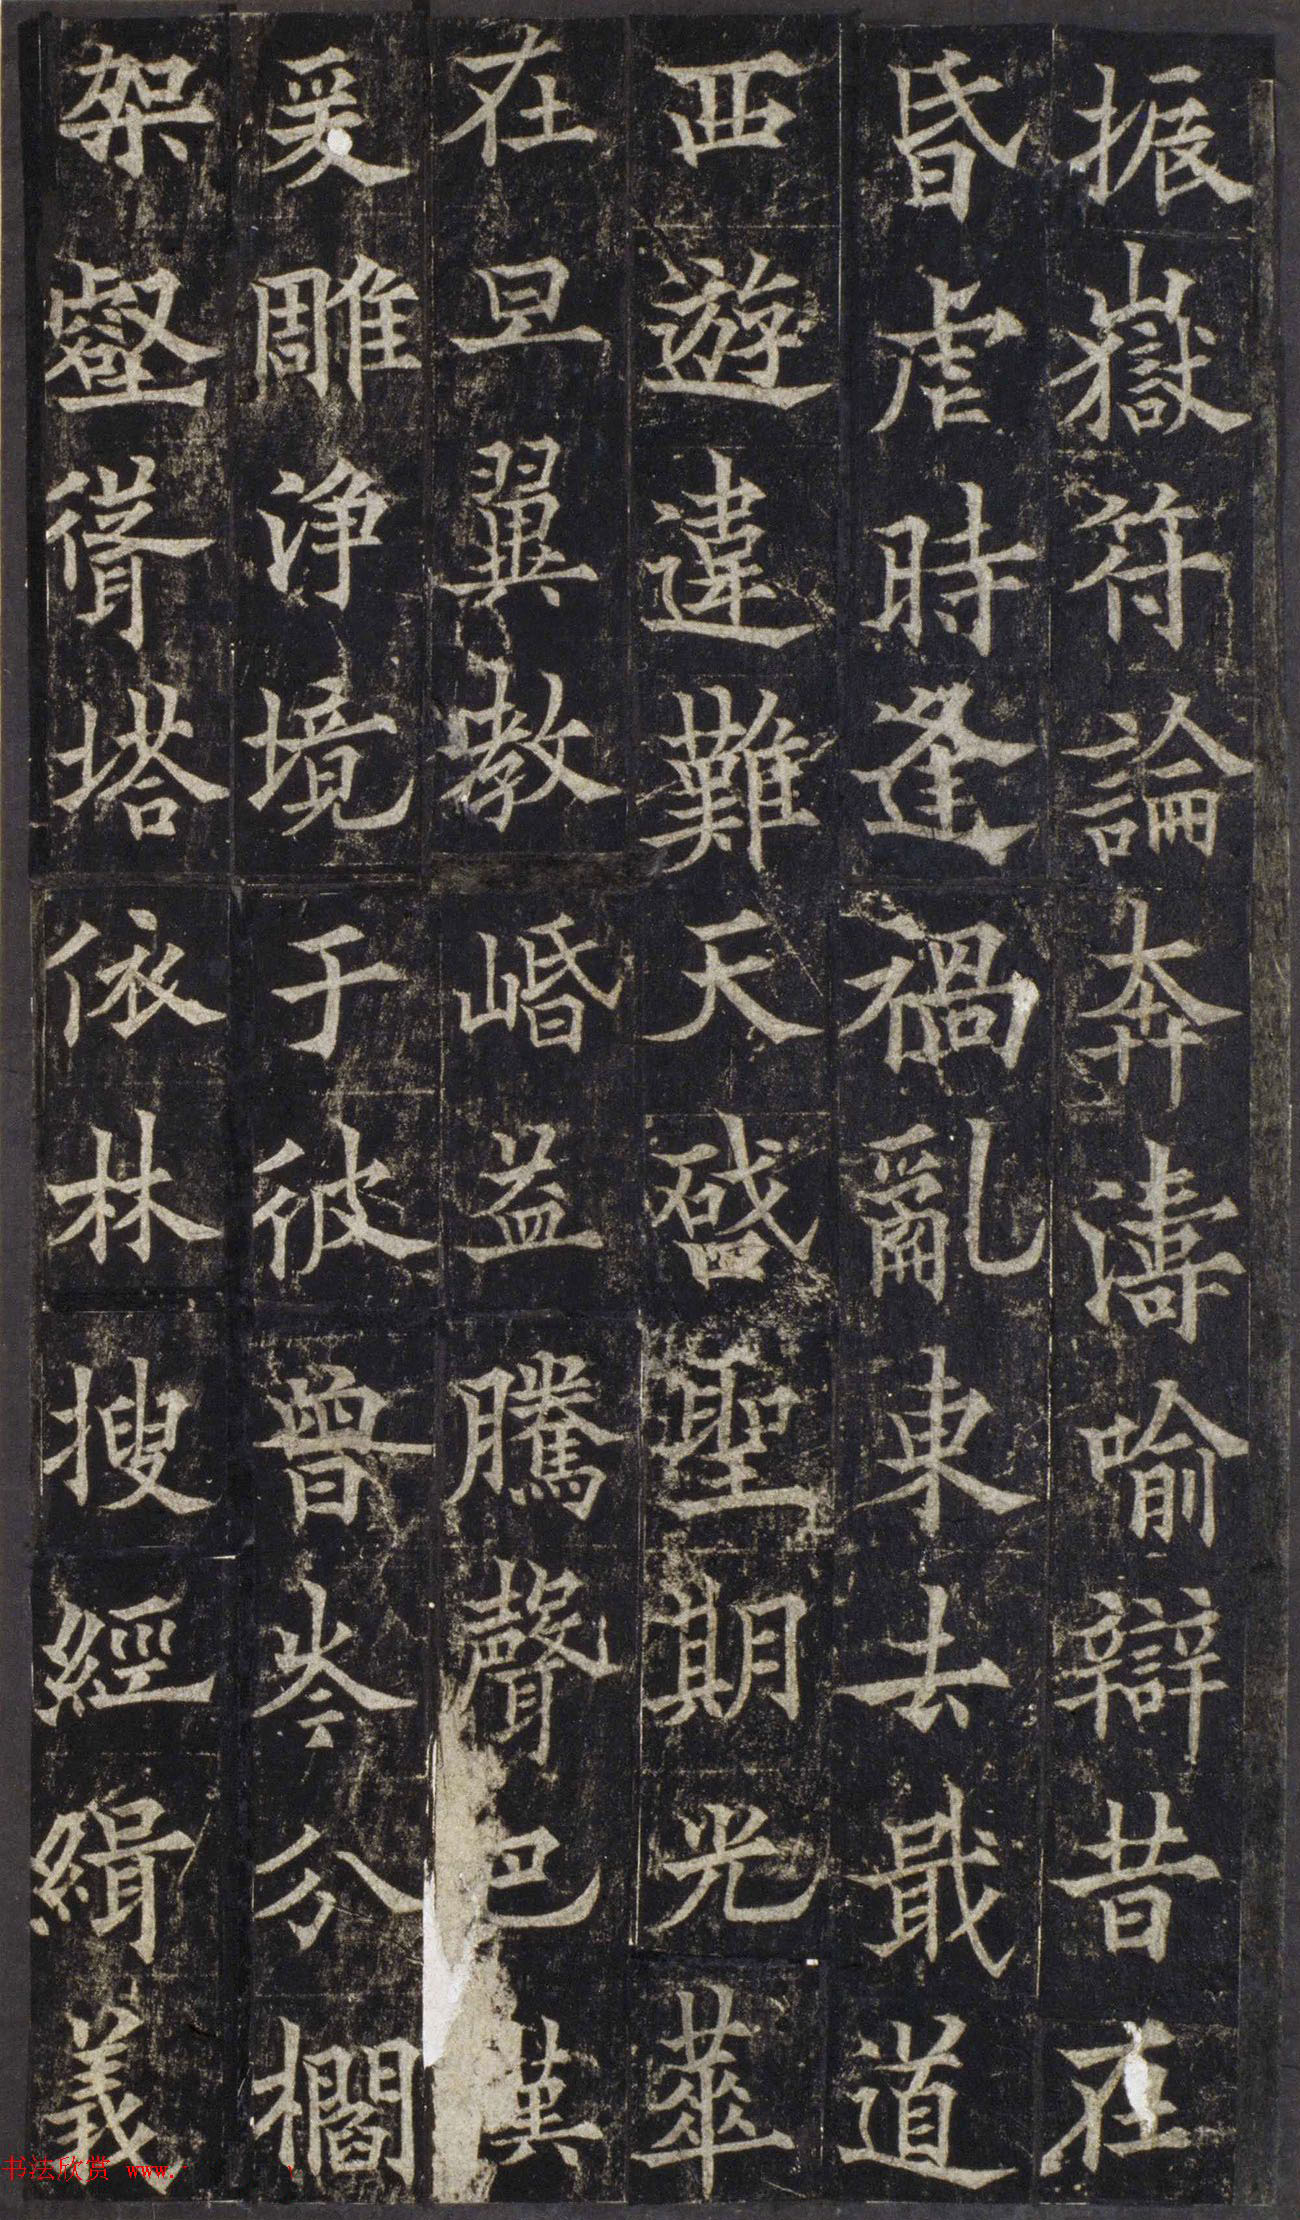 振嶽符論奔濤喻辯昔在
昏虐時逢禍亂東去戢道
西遊違難天啟聖期光華
在旦翼教岷益騰聲巴漢
爰雕淨境于彼曾岑分櫩
架壑聳塔依林搜經緝義
书法欣赏 www.